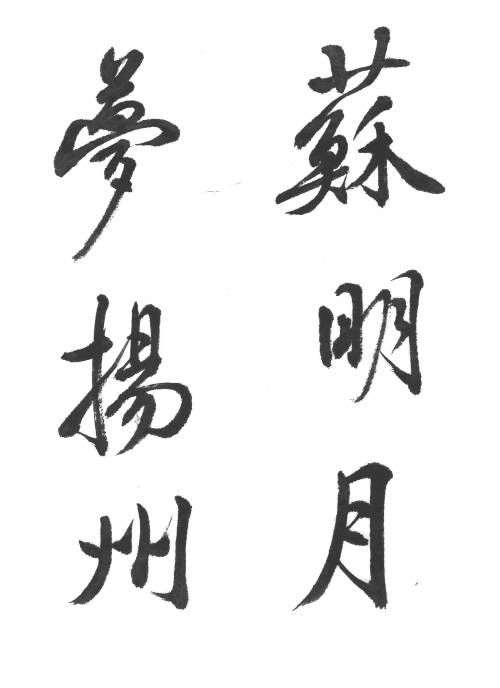 蘇明月
夢揚州